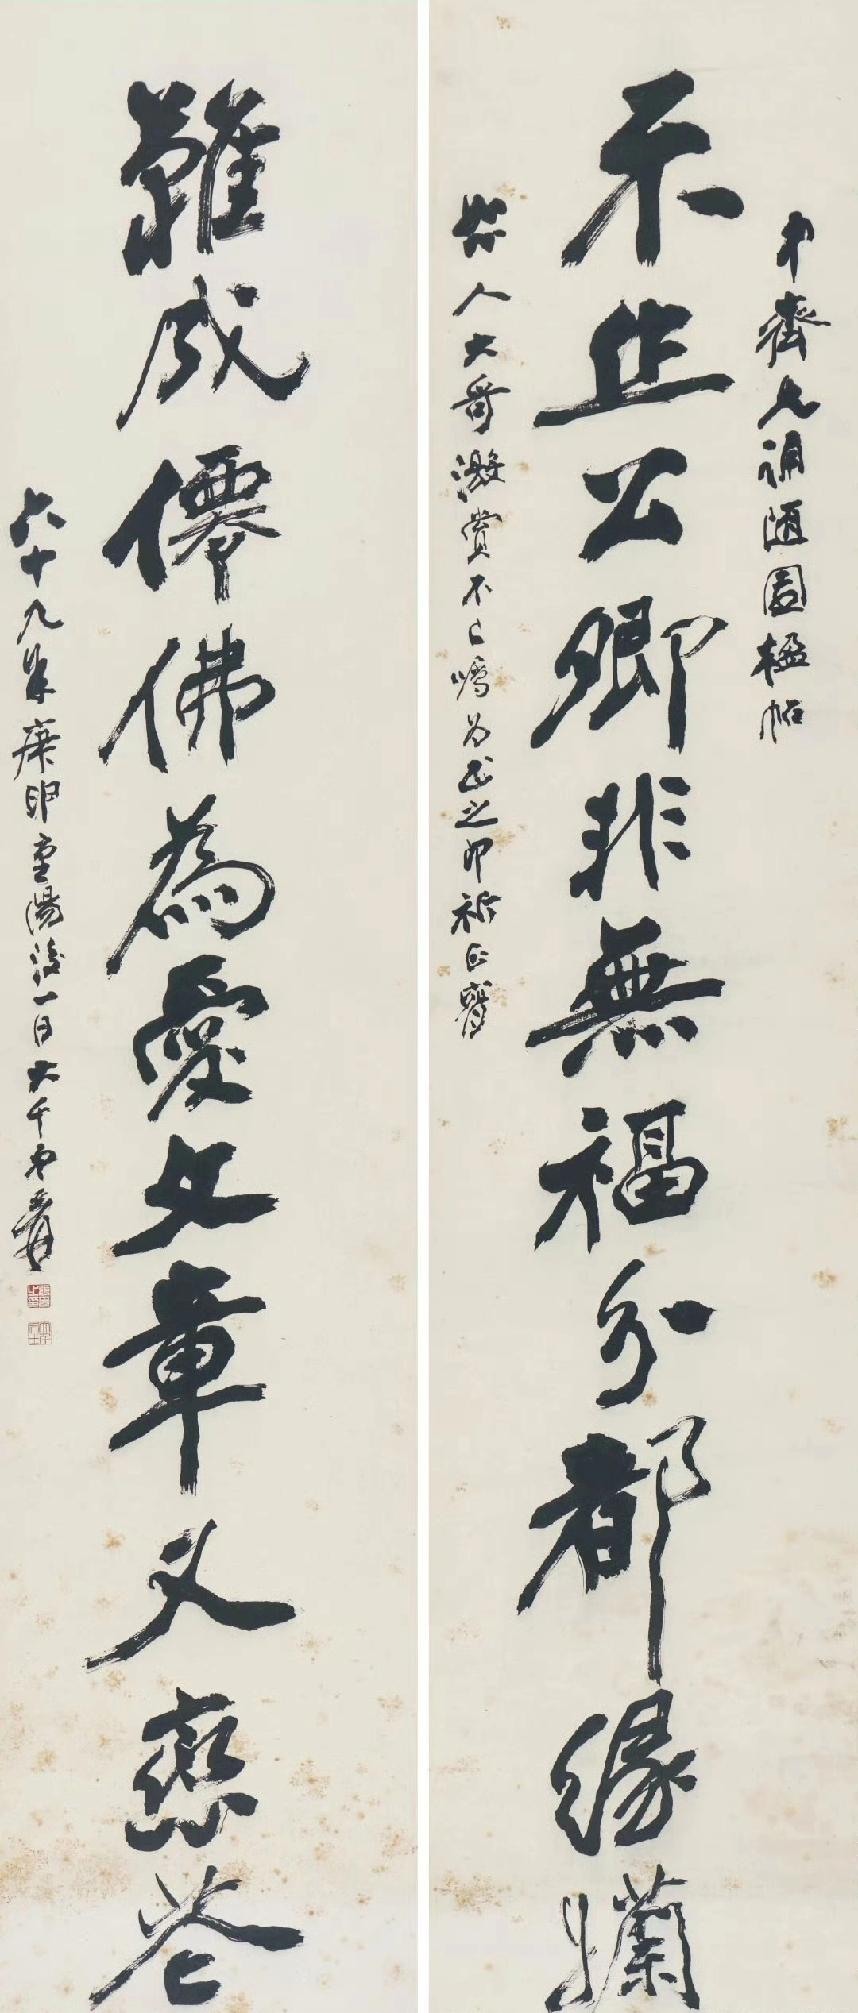 齋兄誦隨園楹帖
不作公卿非無福分都緣孏
人大哥激賞不已囑為書之即祈正腕
難成僊佛為愛文章又戀花
六十九年庚申重陽後一日大千弟爰